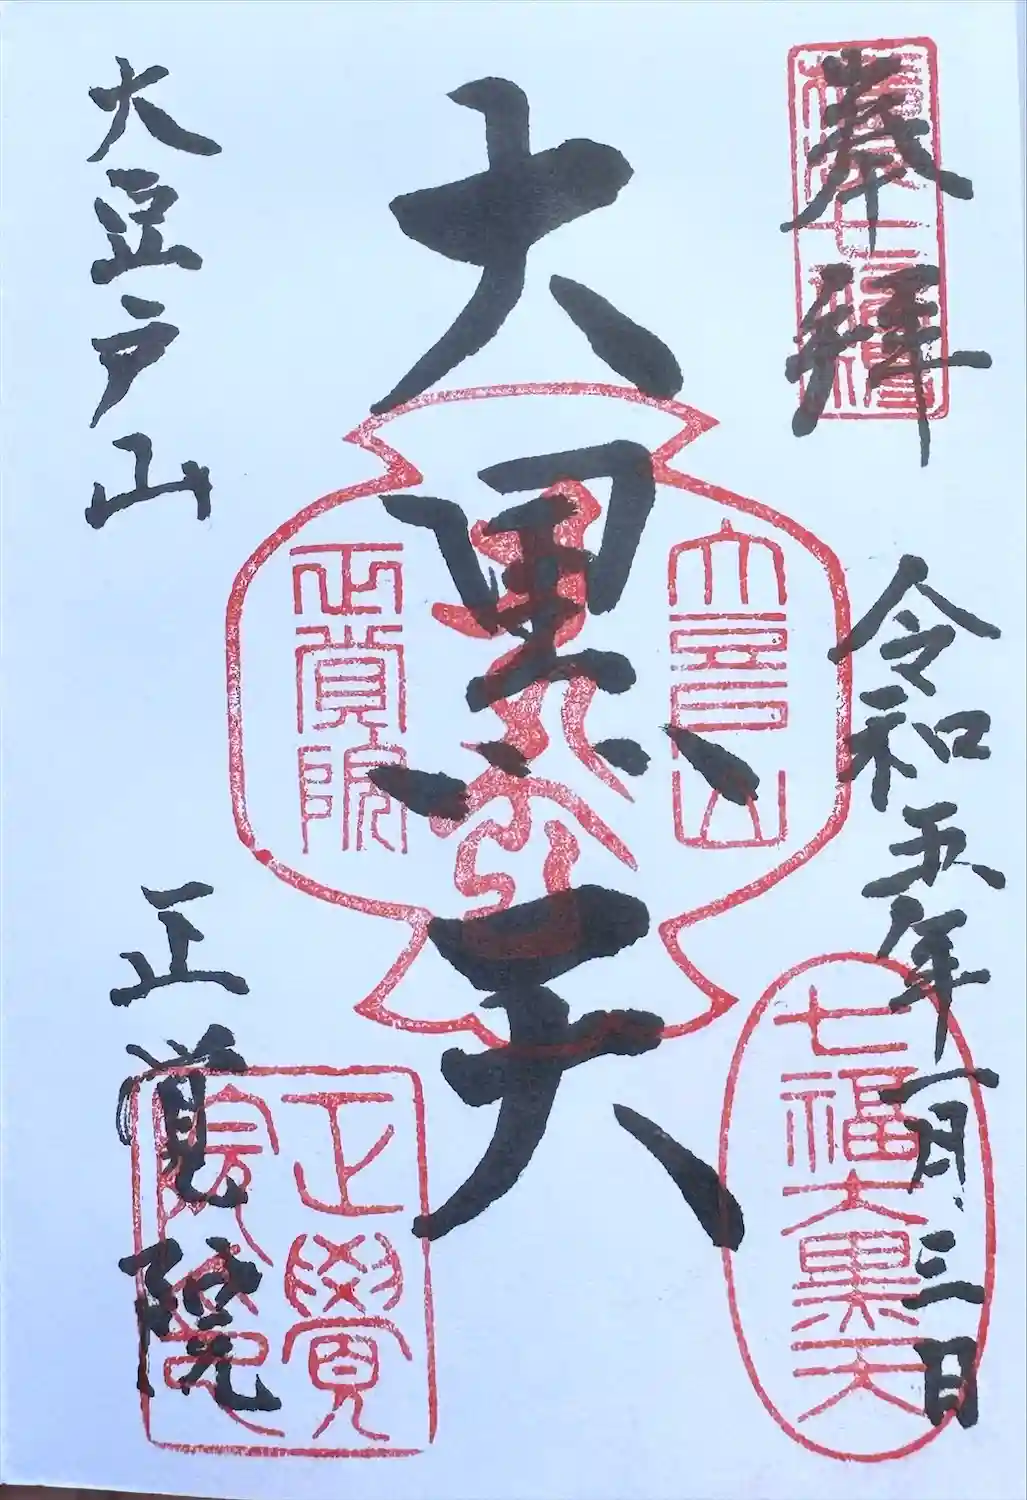 奉拝
令和五年一月三日
七福大黒天
大黒天
大豆戸山
正覚院
大豆戸山
正覚院
正覺